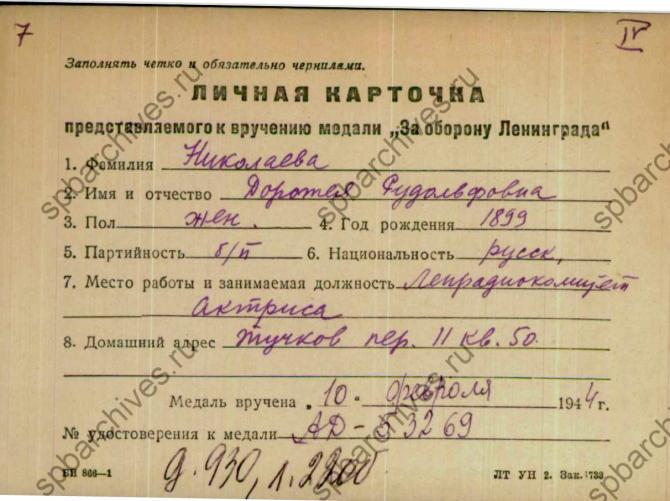 7 IV
Заполнять четко и обязательно чернилами.
ЛИЧНАЯ КАРТОЧКА
представляемого к вручению медали „За оборону Ленинграда"
1. Фамилия Николаева
2. Имя и отчество Доротея Рудольфовна
3. Пол жен. 4. Год рождения 1899
5. Партийность б/п 6. Национальность русск.
7. Место работы и занимаемая должность Ленрадиокомитет
актриса
8. Домашний адрес Тучков пер. 11 кв. 50.
Медаль вручена „10" февраля 1944 г.
№ удостоверения к медали АД-53269
БИ 866—1 д. 930, л. ЛТ УН 2. Зак. 1733
spbarchives.ru
spbarchives.ru
spbarchives.ru
spbarchives.ru
spbarchives.ru
spbarchives.ru